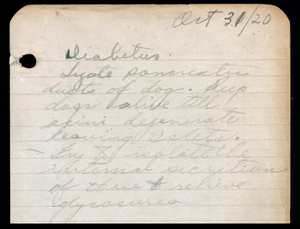 Oct 31/20
Diabetus.
Ligate pancreatic
ducts of dog. Keep
dogs alive till
acini degenerate
leaving Islets.
Try to isolate the
internal secretion
of these to relieve
glycosurea